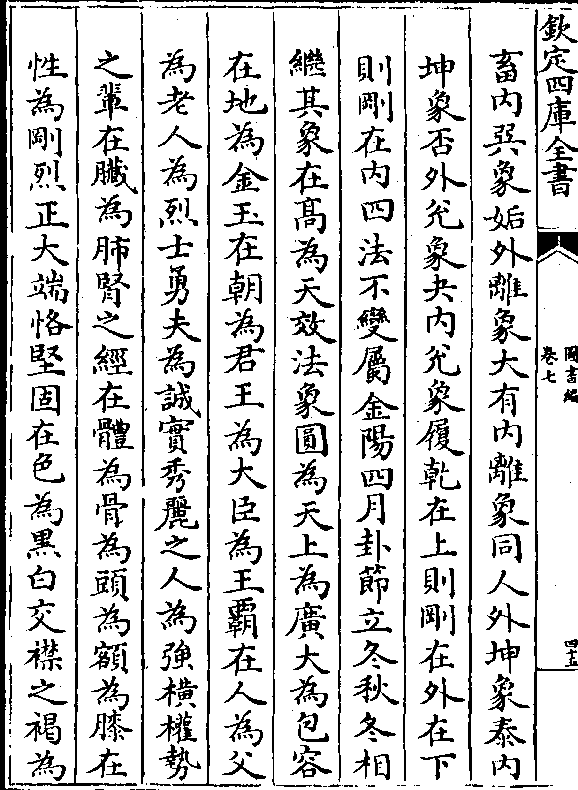 欽定四庫全書
圖書編
卷七
四十五
畜内巽象姤外離象大有内離象同人外坤象泰内
坤象否外兊象夬内兊象履乾在上則剛在外在下
則剛在内四法不變屬金陽四月卦節立冬秋冬相
繼其象在髙為天效法象圓為天上為廣大為包容
在地為金玉在朝為君王為大臣為王覇在人為父
為老人為烈士勇夫為誠實秀麗之人為強橫權勢
之輩在臟為肺腎之經在體為骨為頭為額為膝在
性為剛烈正大端恪堅固在色為黒白交襟之褐為